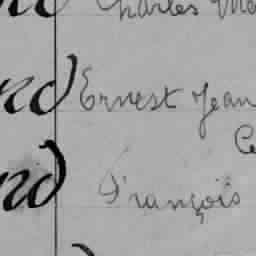 nd Charles
nd Ernest Jean
nd François